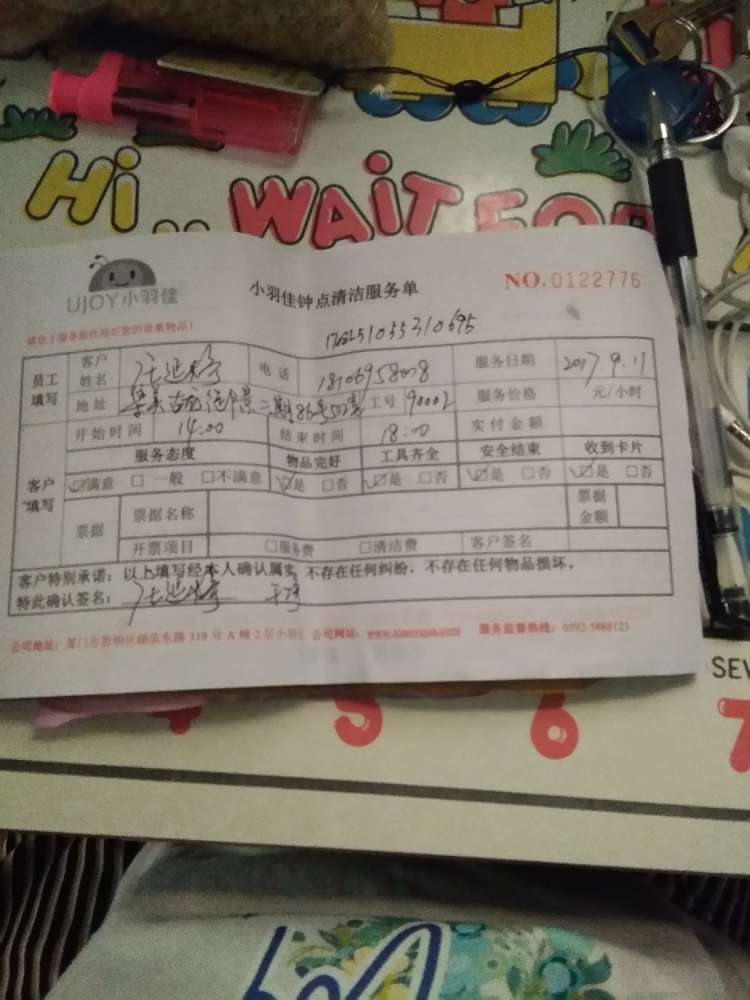 Hi.. WAIT FOR
UJOY小羽佳
小羽佳钟点清洁服务单
NO.0122776
请您于服务前收拾好您的贵重物品!
员工填写 客户姓名 电话 18106958078 服务日期 2017.9.11
地址 二期86号502室 工号 90002 服务价格 元/小时
客户填写 开始时间 14:00 结束时间 18:00 实付金额
服务态度 物品完好 工具齐全 安全结束 收到卡片
☑满意 □一般 □不满意 ☑是 □否 ☑是 □否 ☑是 □否 ☑是 □否
票据 票据名称 票据金额
开票项目 □服务费 □清洁费 客户签名
客户特别承诺:以上填写经本人确认属实,不存在任何纠纷,不存在任何物品损坏。
特此确认签名:
公司地址:厦门市思明区 东路319号A幢2层小羽佳 公司网站: 服务监督热线:0592-5888123
SEV
5 6 7